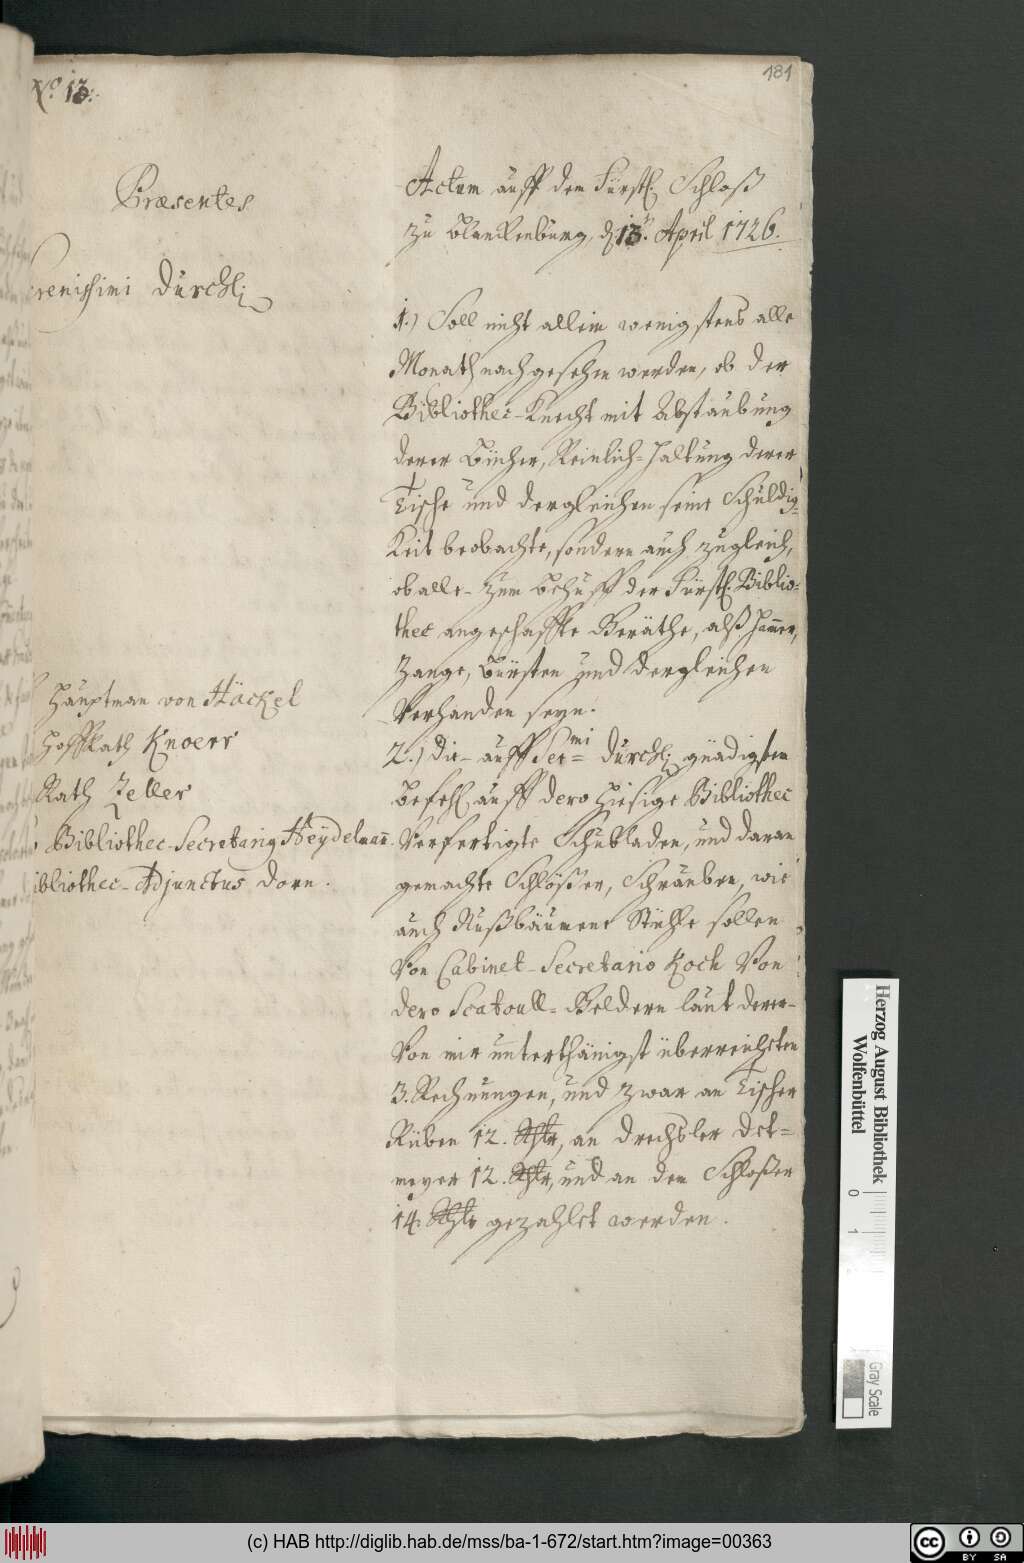 No. 13.
181
Præsentes
Serenissimi Durchl:
Hauptman von Häckel
Hoffrath Knoerr
Rath Zeller
Bibliothec-Secretarig Heÿdelmañ
Bibliothec-Adjunctus Dorn.
Actum auff dem Fürstl. Schloß
zu Blanckenburg, d. 13t. April 1726.
1.) Soll nicht allein wenigstens alle
Monath nachgesehen werden, ob der
Bibliothec-Knecht mit Abstäubung
derer Bücher, Reinlich-Haltung derer
Tische und dergleichen seine Schuldig-
keit beobachte, sondern auch zugleich,
ob alle- zum Behuff der Fürstl. Biblio-
thec angeschaffte Geräthe, alß Ham̄er,
Zange, Bürsten und dergleichen
Verhanden seyn.
2.) Die- auff Sermi Durchl: gnädigsten
Befehl auff dero hiesige Bibliothec
Verfertigte Schubladen, und daran
gemachte Schlößer, Schrauben, wie
auch Nußbäumene Stühle sollen
Von Cabinet-Secretario Koch Von
dero Scatoull-Geldern laut derer-
Von mir unterthänigst überreichten
3. Rechnungen, und zwar an Tischer
Rüben 12. Rthlr, an Drechsler Det-
meyer 12. Rthlr, und an den Schloßer
14. Rthlr gezahlet werden.
Herzog August Bibliothek
Wolfenbüttel
0 1
Gray Scale
(c) HAB http://diglib.hab.de/mss/ba-1-672/start.htm?image=00363
cc BY SA